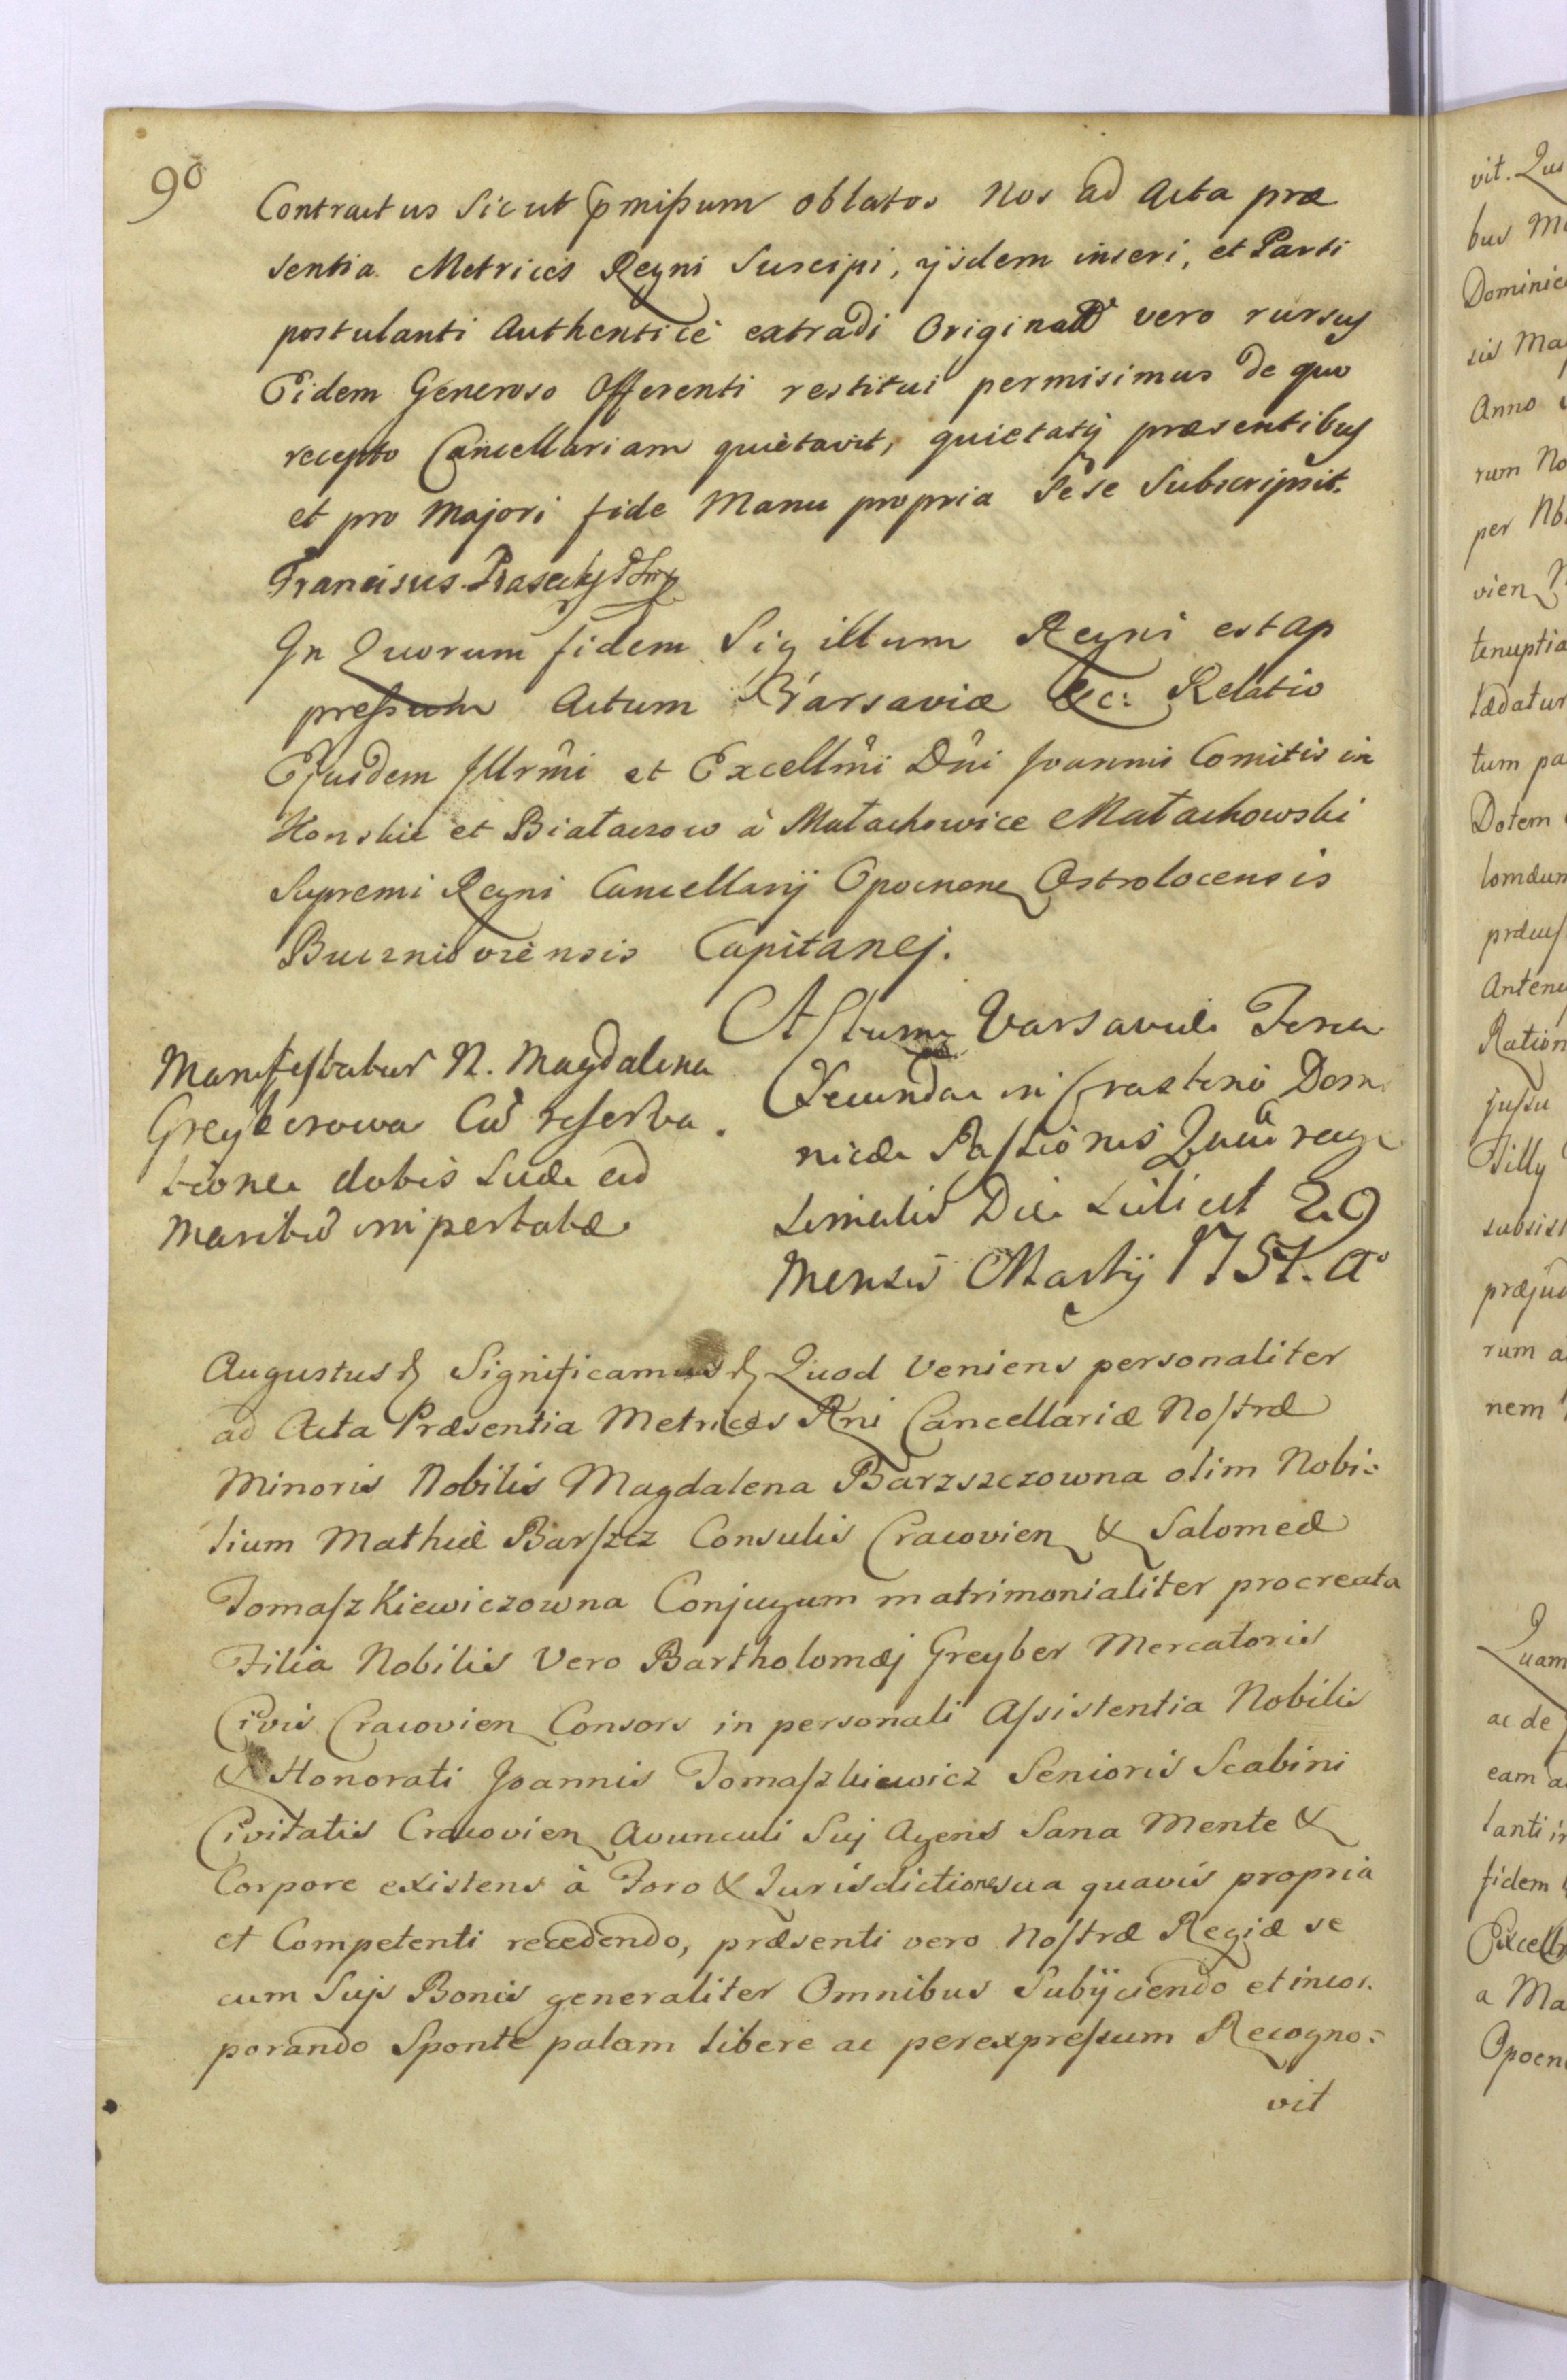 90
Contractus Sicut pmißum oblatos Nos ad Acta præ
sentia Metrices Regni Suscipi, ijsdem inseri, et Parti
postulanti Authenticè extradi Original vero rursus
Eidem Generoso Offerenti restitui permisimus de quo
recepto Cancellariam quietavit, quietatq præsentibus
et pro Majori fide Manu propria Sese Subscripsit.
Franciscus Piasecky
In Quorum fidem Sigillum Regni est ap
preßum Actum Varsaviæ &c: Relatio
Ejusdem Jllrmi et Excellmi Dñi Joannis Comitis in
Konskie et Białaczow à Małachowice Małachowski
Supremi Regni Cancellarij Opocnen Ostrolocensis
Capitanej.
Manifestatur N. Magdalena
Greyberowa Cũ reserva
tione dotis Suæ ad
Maritũ importatæ
Actum Varsaviæ Feria
Secunda in Crastino Domi
nicæ Pastionis Quadrage
simalis Die Scilicet 29
Mensis Martij 1757. Aº
Augustus & Significamus & Quod Veniens personaliter
ad Acta Præsentia Metrices Rni Cancellariæ Nostræ
Minoris Nobilis Magdalena Barzszczowna olim Nobi:
lium Mathiæ Barszcz Consulis Cracovien & Salomeæ
Tomaszkiewiczowna Conjugum matrimonialiter procreata
Filia Nobilis Vero Bartholomæj Greyber Mercatoris
Civis Cracovien Consors in personali Assistentia Nobilis
& Honorati Joannis Tomaszkiewicz Senioris Scabini
Civitatis Cracovien Avunculi Suj Agens Sana Mente &
Corpore existens à Foro & Jurisdictione sua quavis propria
et Competenti recedendo, præsenti vero Nostræ Regiæ se
cum Sujs Bonis generaliter Omnibus Subijciendo et incor.
porando Sponte palam libere ac per expressum Recogno:
vit